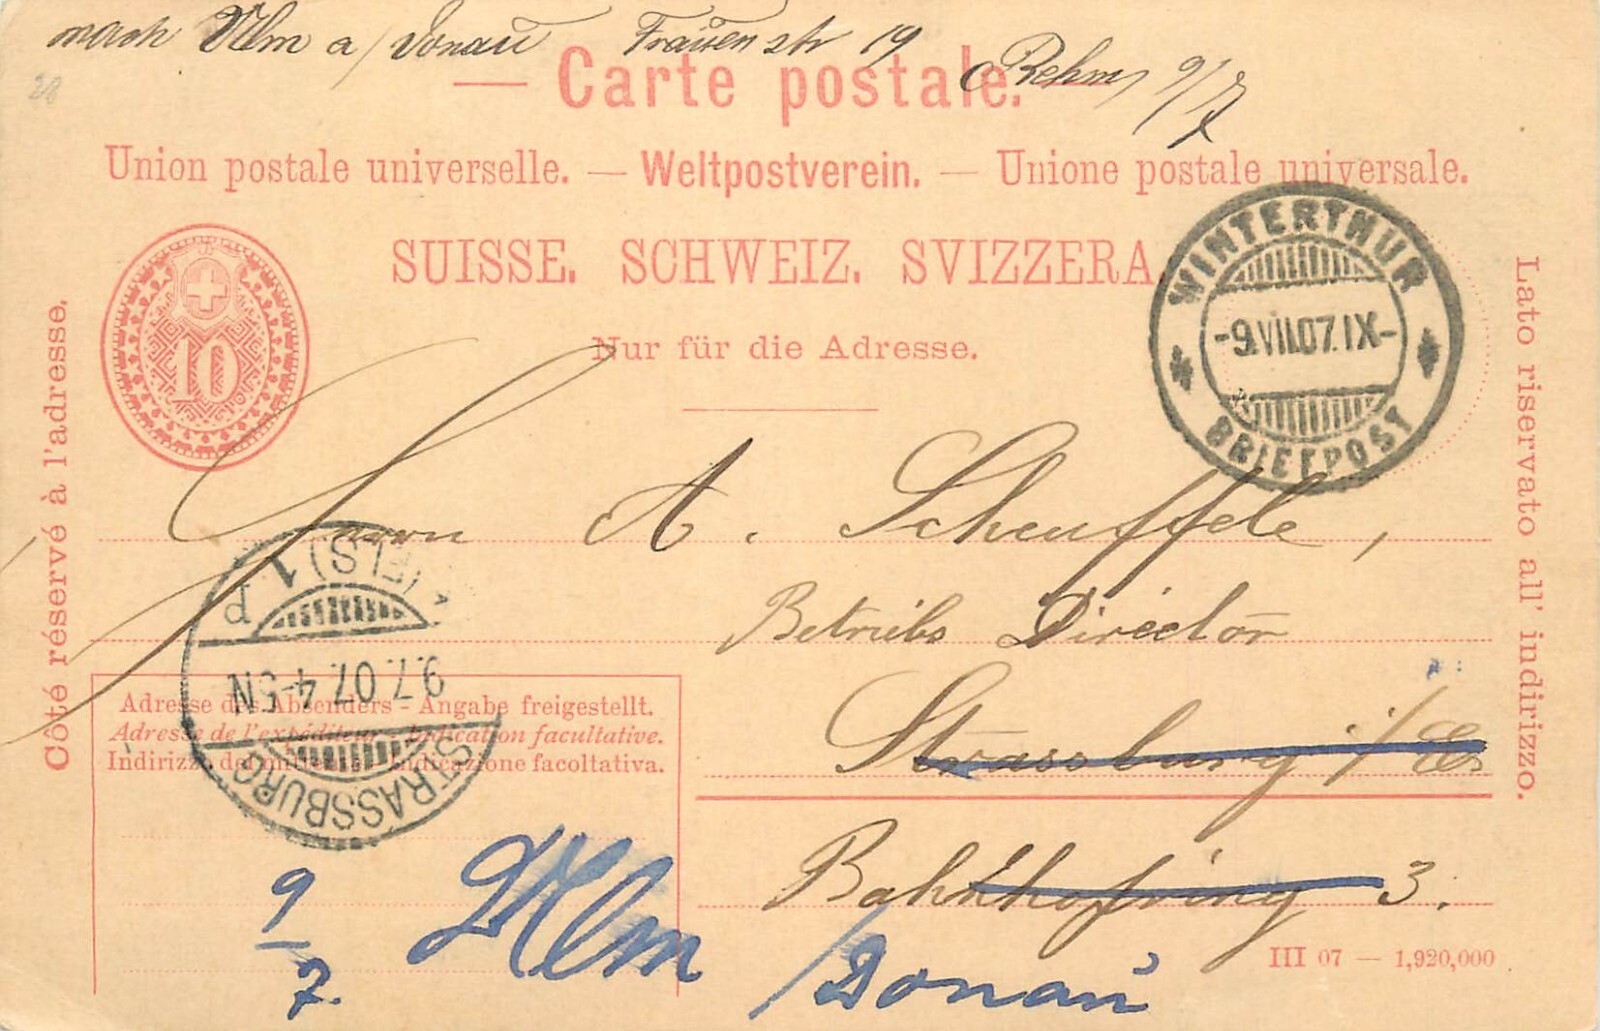 nach Ulm a/Donau Frauenstr 19 Rehm 9/7
28
— Carte postale.
Union postale universelle. — Weltpostverein. — Unione postale universale.
SUISSE. SCHWEIZ. SVIZZERA.
Nur für die Adresse.
10
WINTERTHUR
-9.VII.07.IX-
BRIEFPOST
Côté réservé à l'adresse.
Lato riservato all' indirizzo.
Herrn A. Scheuffele,
Betriebs Director
Strassburg i/Els
Bahnhofring 3.
STRASSBURG
9.7.07.4-5N
(ELS) 1 P
Adresse des Absenders - Angabe freigestellt.
Adresse de l'expéditeur - Indication facultative.
Indirizzo del mittente - Indicazione facoltativa.
9/7. Ulm /Donau
III 07 — 1,920,000